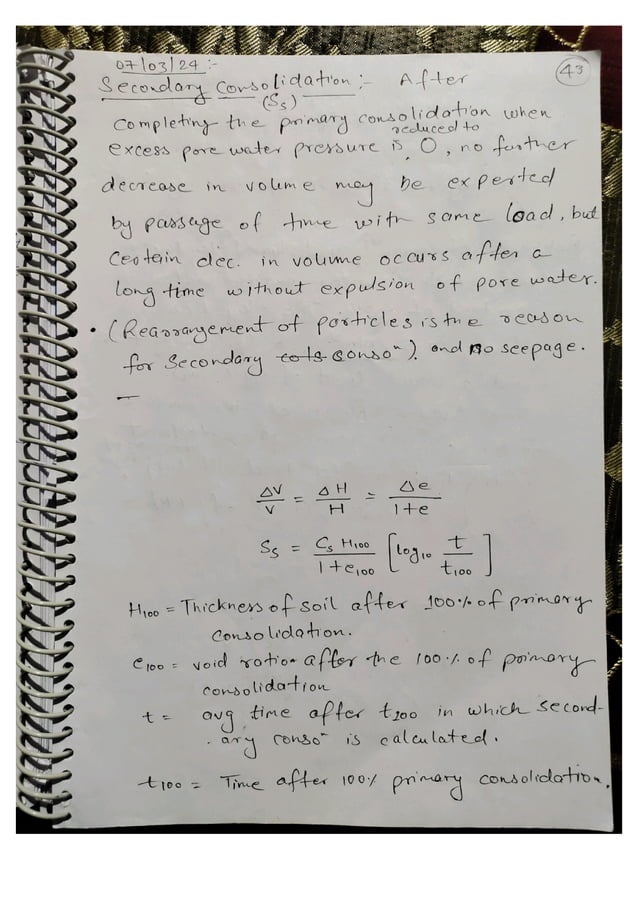 07/03/24:-
43
Secondary Consolidation:- After
(Ss)
completing the primary consolidation when
reduced to
excess pore water pressure is 0, no further
decrease in volume may be experted
by passage of time with same load, but
Certain dec. in volume occurs after a
long time without expulsion of pore water.
• (Rearrangement of particles is the reason
for Secondary consoⁿ) and no seepage.
–
ΔV/V = ΔH/H = Δe/1+e
Ss = Cs H100/1+e100 [log10 t/t100]
H100 = Thickness of soil after 100% of primary
consolidation.
e100 = void ratio after the 100% of primary
consolidation
t = avg time after t100 in which second-
ary consoⁿ is calculated.
t100 = Time after 100% primary consolidation.